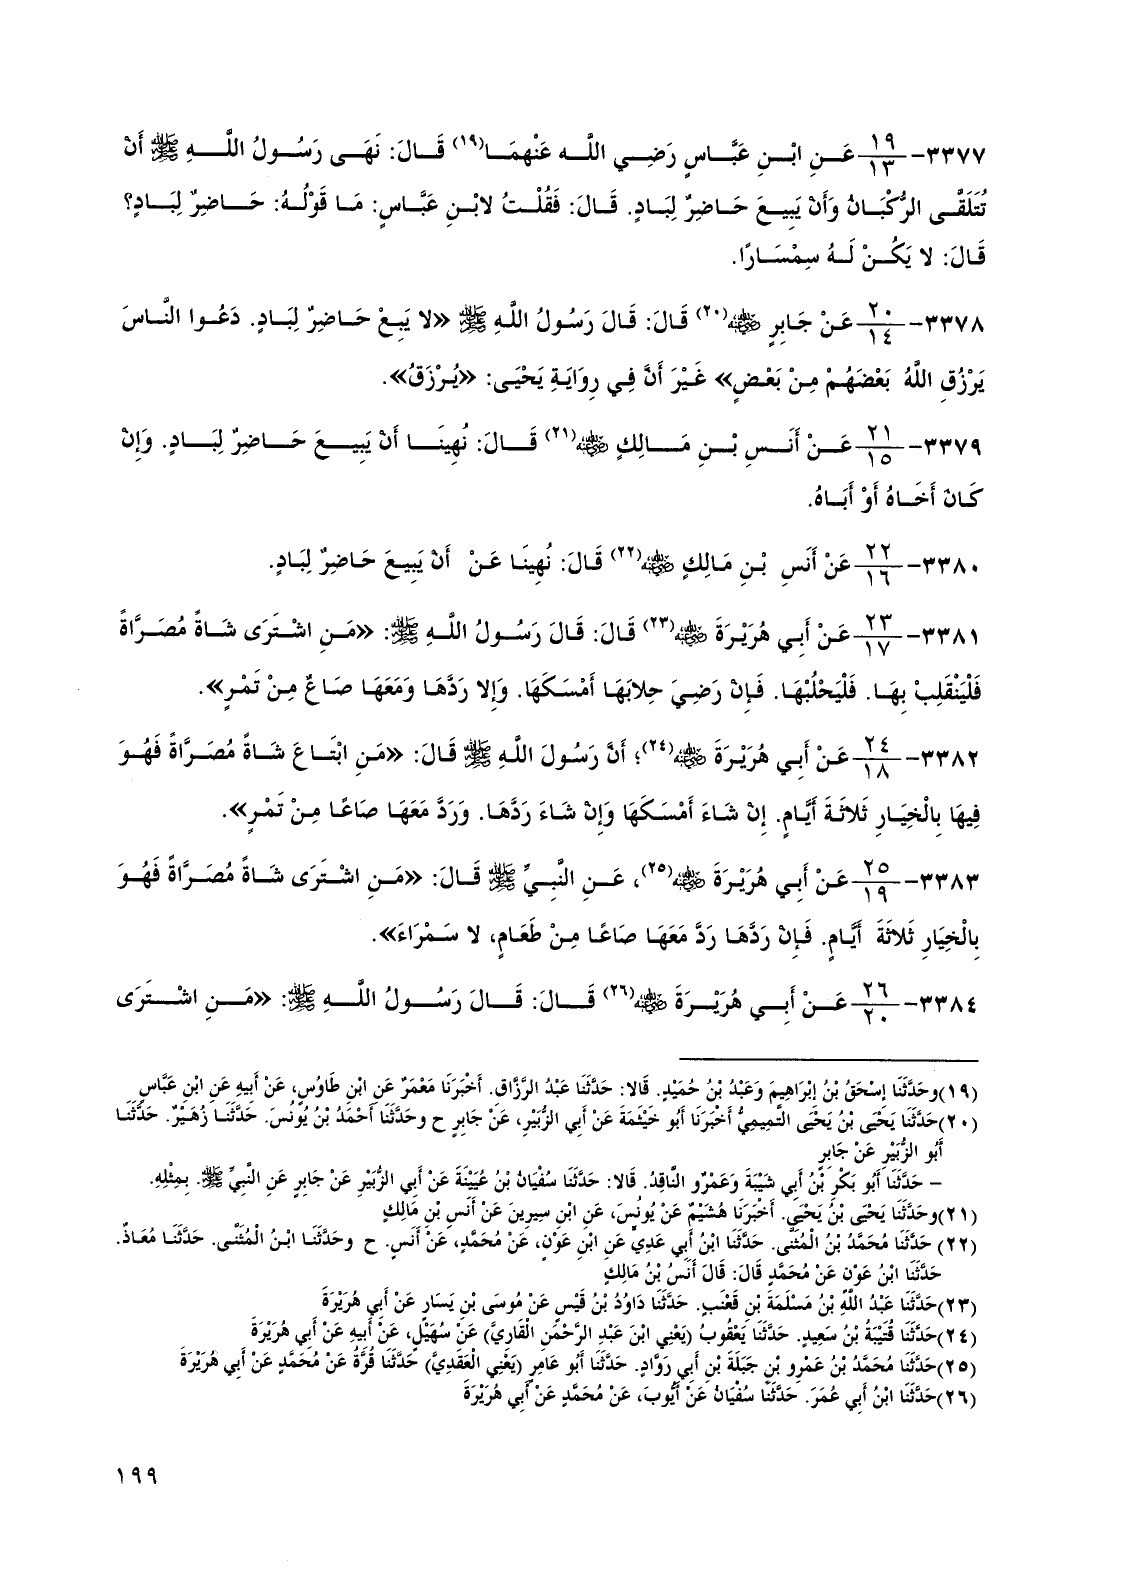 ٣٣٧٧- ١٩/١٣ عَنِ ابْنِ عَبَّاسٍ رَضِي اللَّه عَنْهمَا(١٩) قَالَ: نَهَى رَسُولُ اللَّهِ ﷺ أَنْ
تُتَلَقَّى الرُّكْبَانُ وَأَنْ يَبِيعَ حَاضِرٌ لِبَادٍ. قَالَ: فَقُلْتُ لابْنِ عَبَّاسٍ: مَا قَوْلُهُ: حَاضِرٌ لِبَادٍ؟
قَالَ: لا يَكُنْ لَهُ سِمْسَارًا.
٣٣٧٨- ٢٠/١٤ عَنْ جَابِرٍ ﷺ(٢٠) قَالَ: قَالَ رَسُولُ اللَّهِ ﷺ «لا يَبِعْ حَاضِرٌ لِبَادٍ. دَعُوا النَّاسَ
يَرْزُقِ اللَّهُ بَعْضَهُمْ مِنْ بَعْضٍ» غَيْرَ أَنَّ فِي رِوَايَةِ يَحْيَى: «يُرْزَقُ».
٣٣٧٩- ٢١/١٥ عَنْ أَنَسِ بْنِ مَالِكٍ (٢١) قَالَ: نُهِينَا أَنْ يَبِيعَ حَاضِرٌ لِبَادٍ. وَإِنْ
كَانَ أَخَاهُ أَوْ أَبَاهُ.
٣٣٨٠- ٢٢/١٦ عَنْ أَنَسِ بْنِ مَالِكٍ (٢٢) قَالَ: نُهِينَا عَنْ أَنْ يَبِيعَ حَاضِرٌ لِبَادٍ.
٣٣٨١- ٢٣/١٧ عَنْ أَبِي هُرَيْرَةَ (٢٣) قَالَ: قَالَ رَسُولُ اللَّهِ ﷺ: «مَنِ اشْتَرَى شَاةً مُصَرَّاةً
فَلْيَنْقَلِبْ بِهَا. فَلْيَحْلُبْهَا. فَإِنْ رَضِيَ حِلابَهَا أَمْسَكَهَا. وَإِلا رَدَّهَا وَمَعَهَا صَاعٌ مِنْ تَمْرٍ».
٣٣٨٢- ٢٤/١٨ عَنْ أَبِي هُرَيْرَةَ (٢٤)؛ أَنَّ رَسُولَ اللَّهِ ﷺ قَالَ: «مَنِ ابْتَاعَ شَاةً مُصَرَّاةً فَهُوَ
فِيهَا بِالْخِيَارِ ثَلاثَةَ أَيَّامٍ. إِنْ شَاءَ أَمْسَكَهَا وَإِنْ شَاءَ رَدَّهَا. وَرَدَّ مَعَهَا صَاعًا مِنْ تَمْرٍ».
٣٣٨٣- ٢٥/١٩ عَنْ أَبِي هُرَيْرَةَ (٢٥)، عَنِ النَّبِيِّ ﷺ قَالَ: «مَنِ اشْتَرَى شَاةً مُصَرَّاةً فَهُوَ
بِالْخِيَارِ ثَلاثَةَ أَيَّامٍ. فَإِنْ رَدَّهَا رَدَّ مَعَهَا صَاعًا مِنْ طَعَامٍ، لا سَمْرَاءَ».
٣٣٨٤- ٢٦/٢٠ عَنْ أَبِي هُرَيْرَةَ (٢٦) قَالَ: قَالَ رَسُولُ اللَّهِ ﷺ: «مَنِ اشْتَرَى
(١٩)وحَدَّثَنَا إِسْحَقُ بْنُ إِبْرَاهِيمَ وَعَبْدُ بْنُ حُمَيْدٍ. قَالا: حَدَّثَنَا عَبْدُ الرَّزَّاقِ. أَخْبَرَنَا مَعْمَرٌ عَنِ ابْنِ طَاوُسٍ، عَنْ أَبِيهِ عَنِ ابْنِ عَبَّاسٍ
(٢٠)حَدَّثَنَا يَحْيَى بْنُ يَحْيَى التَّمِيمِيُّ أَخْبَرَنَا أَبُو خَيْثَمَةَ عَنْ أَبِي الزُّبَيْرِ، عَنْ جَابِرٍ ح وحَدَّثَنَا أَحْمَدُ بْنُ يُونُسَ. حَدَّثَنَا زُهَيْرٌ. حَدَّثَنَا
أَبُو الزُّبَيْرِ عَنْ جَابِرٍ
– حَدَّثَنَا أَبُو بَكْرِ بْنُ أَبِي شَيْبَةَ وَعَمْرٌو النَّاقِدُ. قَالا: حَدَّثَنَا سُفْيَانُ بْنُ عُيَيْنَةَ عَنْ أَبِي الزُّبَيْرِ عَنْ جَابِرٍ عَنِ النَّبِيِّ ﷺ. بِمِثْلِهِ.
(٢١)وحَدَّثَنَا يَحْيَى بْنُ يَحْيَى. أَخْبَرَنَا هُشَيْمٌ عَنْ يُونُسَ، عَنِ ابْنِ سِيرِينَ عَنْ أَنَسِ بْنِ مَالِكٍ
(٢٢) حَدَّثَنَا مُحَمَّدُ بْنُ الْمُثَنَّى. حَدَّثَنَا ابْنُ أَبِي عَدِيٍّ عَنِ ابْنِ عَوْنٍ، عَنْ مُحَمَّدٍ، عَنْ أَنَسٍ. ح وحَدَّثَنَا ابْنُ الْمُثَنَّى. حَدَّثَنَا مُعَاذٌ.
حَدَّثَنَا ابْنُ عَوْنٍ عَنْ مُحَمَّدٍ قَالَ: قَالَ أَنَسُ بْنُ مَالِكٍ
(٢٣)حَدَّثَنَا عَبْدُ اللَّهِ بْنُ مَسْلَمَةَ بْنِ قَعْنَبٍ. حَدَّثَنَا دَاوُدُ بْنُ قَيْسٍ عَنْ مُوسَى بْنِ يَسَارٍ عَنْ أَبِي هُرَيْرَةَ
(٢٤)حَدَّثَنَا قُتَيْبَةُ بْنُ سَعِيدٍ. حَدَّثَنَا يَعْقُوبُ (يَعْنِي ابْنَ عَبْدِ الرَّحْمَنِ الْقَارِيَّ) عَنْ سُهَيْلٍ، عَنْ أَبِيهِ عَنْ أَبِي هُرَيْرَةَ
(٢٥)حَدَّثَنَا مُحَمَّدُ بْنُ عَمْرِو بْنِ جَبَلَةَ بْنِ أَبِي رَوَّادٍ. حَدَّثَنَا أَبُو عَامِرٍ (يَعْنِي الْعَقَدِيَّ) حَدَّثَنَا قُرَّةُ عَنْ مُحَمَّدٍ عَنْ أَبِي هُرَيْرَةَ
(٢٦)حَدَّثَنَا ابْنُ أَبِي عُمَرَ. حَدَّثَنَا سُفْيَانُ عَنْ أَيُّوبَ، عَنْ مُحَمَّدٍ عَنْ أَبِي هُرَيْرَةَ
١٩٩